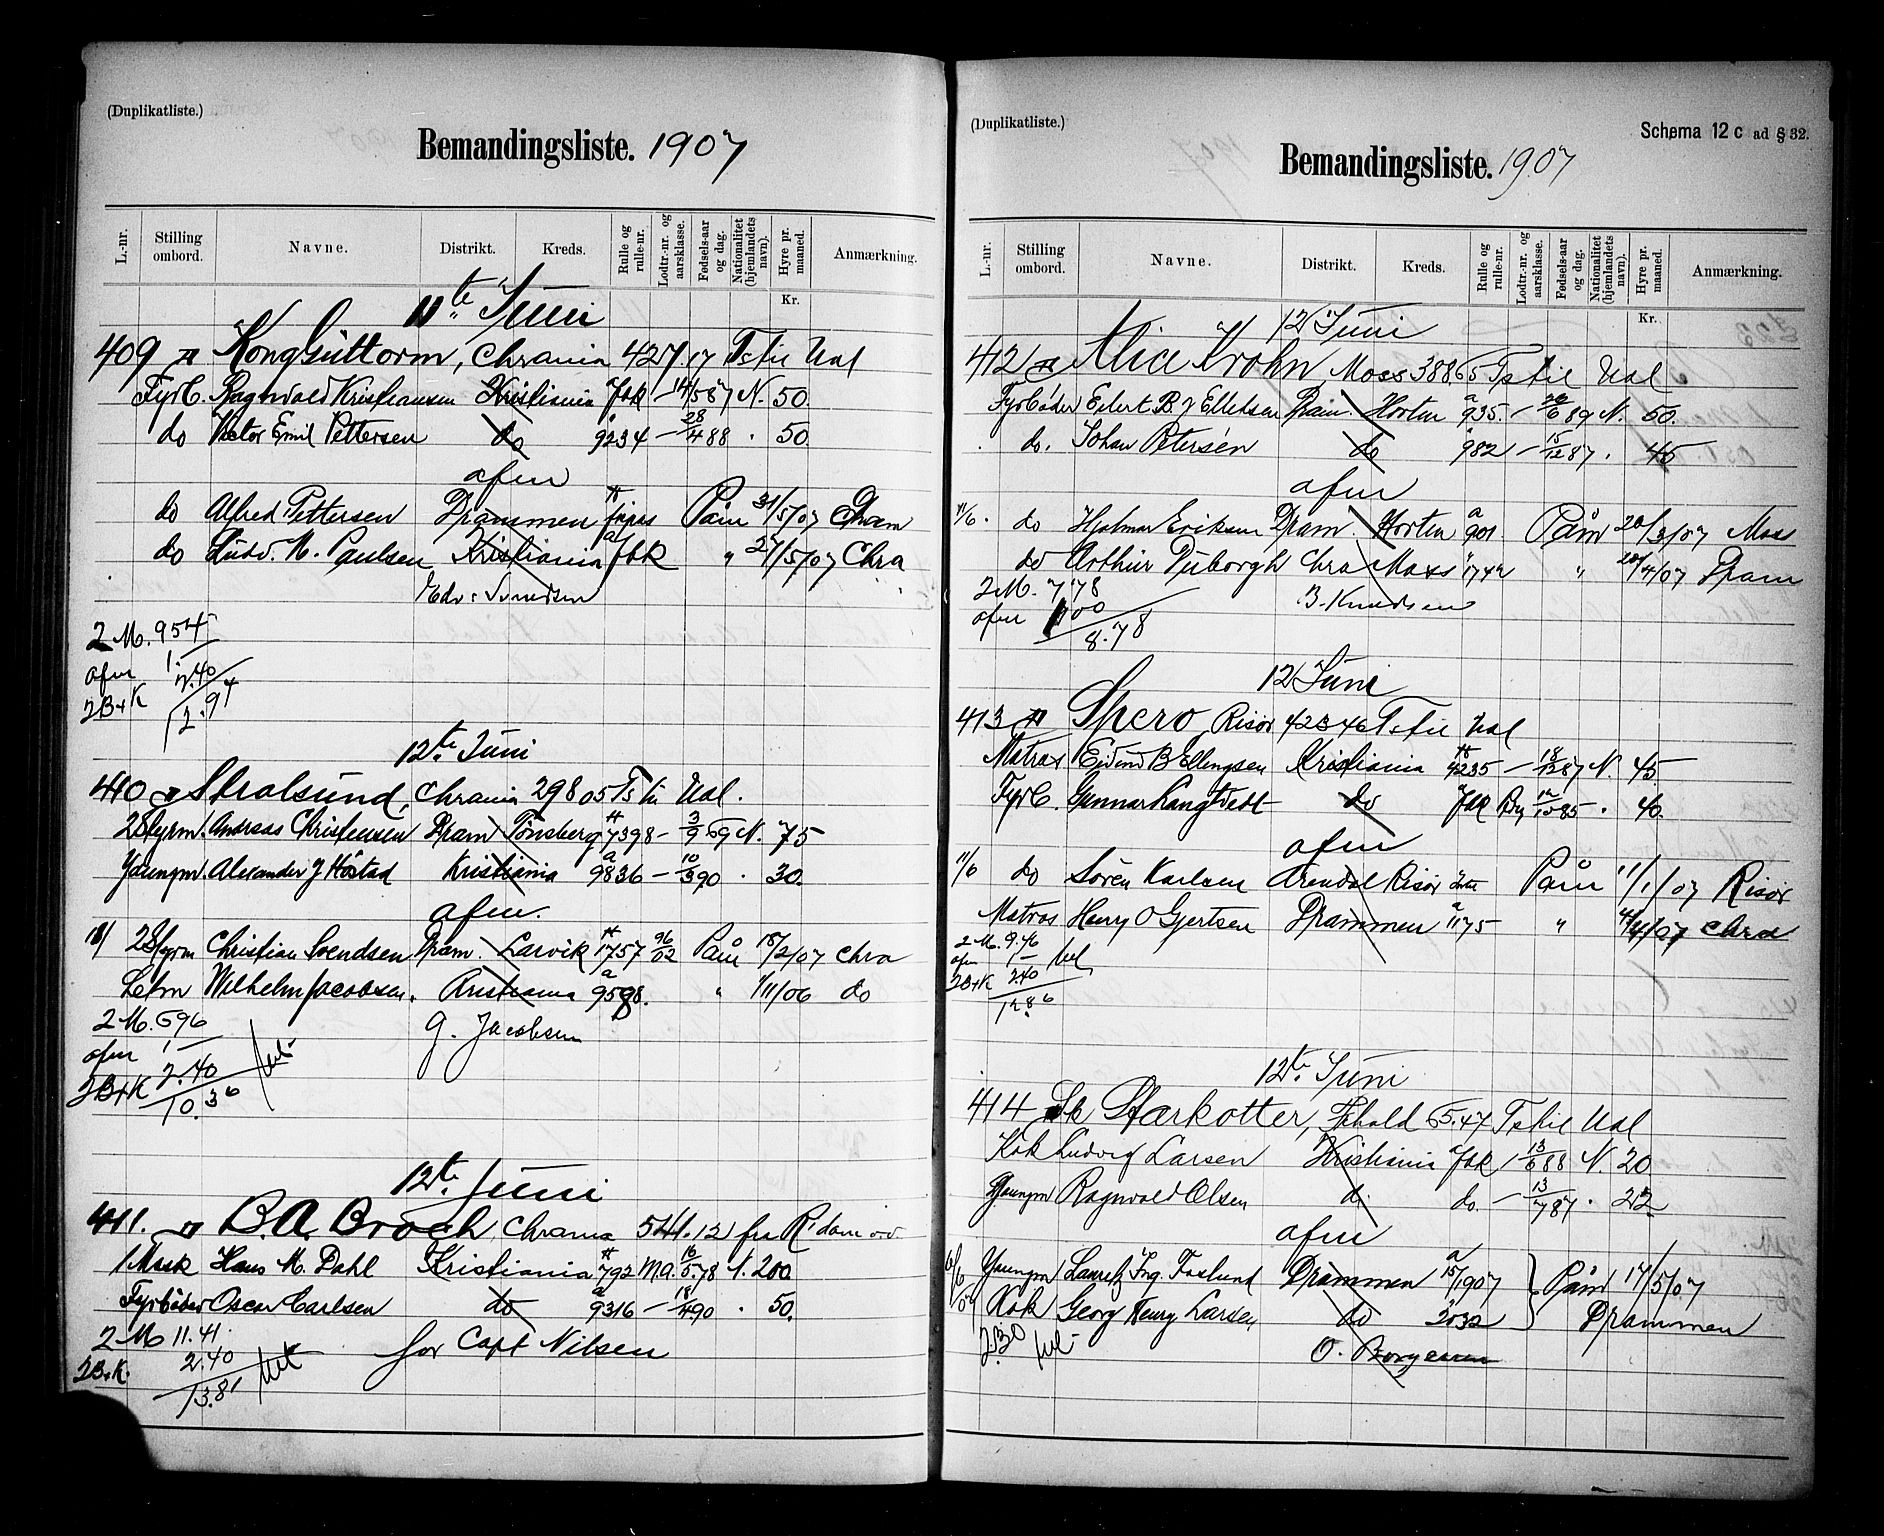 (Duplikatliste.)
Bemandingsliste. 1907
L.-nr.
Stilling ombord.
Navne.
Distrikt.
Kreds.
Rulle og rulle-nr.
Lodtr.-nr. og aarsklasse.
Fødsels-aar og dag.
Nationalitet (hjemlandets navn).
Hyre pr. maaned.
Anmærkning.
Kr.
11te Juni
409 Kong Guttorm, Chrania 427.17 Ts til Ual
Fyrb. Ragnvald Kristiansen Kristiania fbk – 14/5 87 N. 50.
do Victor Emil Pettersen do 9234 – 28/4 88 . 50.
afm
do Alfred Pettersen Drammen Påm 31/5/07 Dram
do Ludv. M. Paulsen Kristiania fbk " 27/5/07 Chra
Edv. Svendsen
2 M. 954
afm 1.
2B+K 2.40
12.94
12te Juni
410 Stralsund, Chrania 298 05 Ts til Ual.
2 Styrm. Andreas Christensen Dram Tønsberg 7398 – 3/9 69 N. 75
Youngm. Alexander J Høstad Kristiania 9836 – 10/3 90 . 30.
afm.
2 Styrm Christian Svendsen Dram. Larvik 1757 96/02 Påm 18/2/07 Chra
Letm Wilhelm Jacobsen. Kristiania 9598. " 1/11/06 do
2 M. 696
G. Jacobsen
afm 1 –
2B+K 2.40
10.36
12te Juni
411. B.A. Broch, Chrania 541.12 fra R'dam
1 Mask Hans M. Dahl Kristiania 792 M.a. 16/5 78 N. 200
Fyrbøder Oscar Carlsen do 9316 – 18/4 90 . 50.
2 M 11.41.
for Capt Nilsen
2B+K. 2.40
13.81
(Duplikatliste.)
Schema 12 c ad § 32.
Bemandingsliste. 1907
L.-nr.
Stilling ombord.
Navne.
Distrikt.
Kreds.
Rulle og rulle-nr.
Lodtr.-nr. og aarsklasse.
Fødsels-aar og dag.
Nationalitet (hjemlandets navn).
Hyre pr. maaned.
Anmærkning.
Kr.
12 Juni
412 Alice Krohn, Moss 388,65 Ts til Ual
Fyrbøder Eilert B. J Ellefsen Dram. Horten 935. – 26/6 89 N. 50.
do. Johan Petersen do 982 – 15/12 87 . 45
afm
11/6. do Hjalmar Eriksen Dram. Horten 901 Påm 20/3/07 Moss
do Arthur Tuborgh Chra Moss 1742 " 20/4/07 Dram
2 M. 778
B. Knudsen
afm 100
8.78
12 Juni
413 Spero, Risør 423 46 Ts til Ual
Matros Eivind B Ellingsen Kristiania 4235 – 18/12 87 N. 45
Fyrb. Gunnar Langtvedt do fbk 85 . 40.
afm
11/6 do Søren Karlsen Arendal Risør Påm 11/1/07 Risør
Matros Harry O Gjertsen Drammen 1175 " 4/4/07 Chra
2 M. 9.46
afm 1 –
2B+K 2.40
12.86
12te Juni
414 Sk Starkotter, Fhald 65.47 Ts til Ual
Kok Ludvig Larsen Kristiania fbk – 13/6 88 N. 20
Youngm Ragnvald Olsen d. do. – 13/7 87 . 22
afm
Youngm Lauritz Ing. Foslund Drammen 15/1907 Påm 17/5/07
Kok Georg Henry Larsen do 2032 Drammen
2.30
O. Borgersen